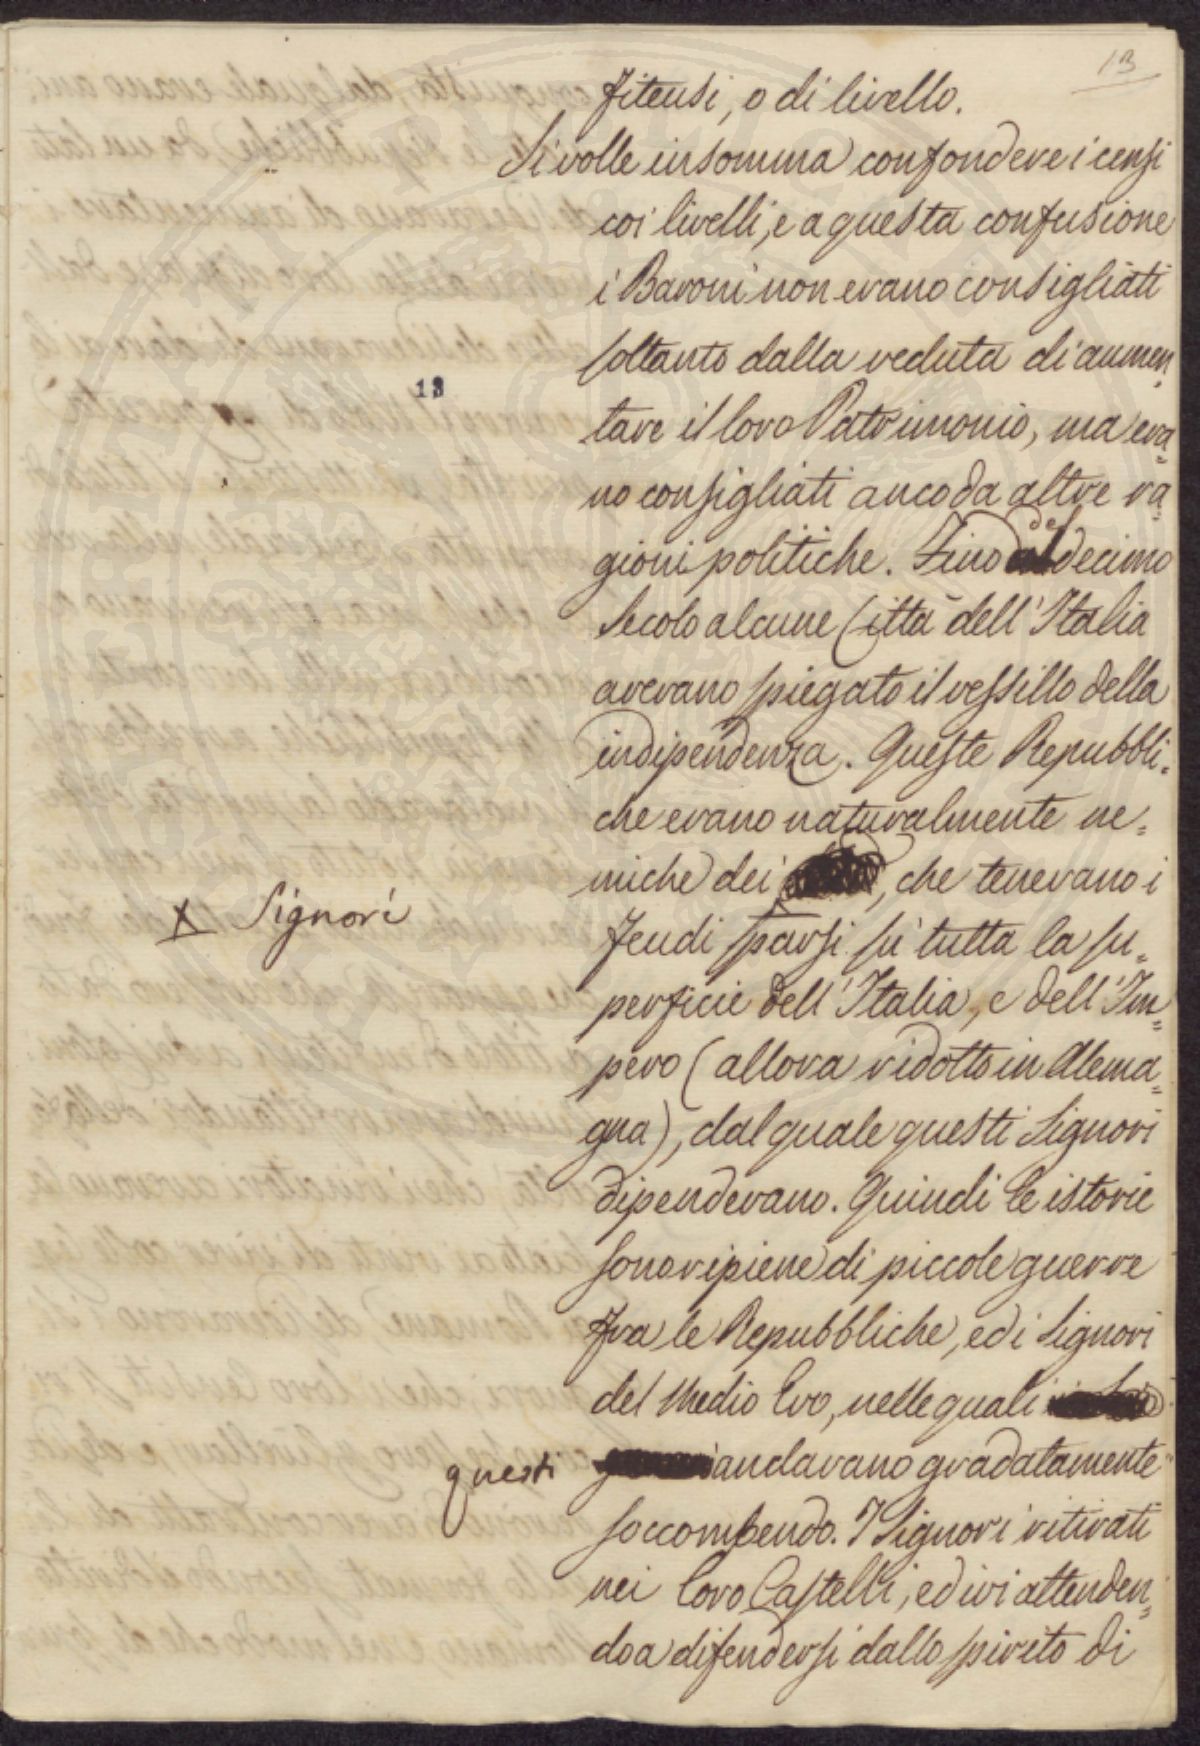 13
fiteusi, o di livello.
Si volle insomma confondere i censi
coi livelli, e a questa confusione
i Baroni non erano consigliati
soltanto dalla veduta di aumen„
13
tare il loro Patrimonio, ma era„
no consigliati anco da altre ra„
gioni politiche. Fino del decimo
Secolo alcune Città dell'Italia
avevano spiegato il vessillo della
indipendenza. Queste Repubbli„
che erano naturalmente ne„
miche dei , che tenevano i
X Signori
feudi sparsi su tutta la su„
perficie dell'Italia, e dell'Im„
pero (allora ridotto in Alema„
gna), dal quale questi Signori
dipendevano. Quindi le istorie
sono ripiene di piccole guerre
fra le Repubbliche, ed i Signori
del Medio Evo, nelle quali
questi andavano gradatamente
soccombendo. I Signori ritirati
nei loro Castelli, ed ivi attenden„
do a difendersi dallo spirito di